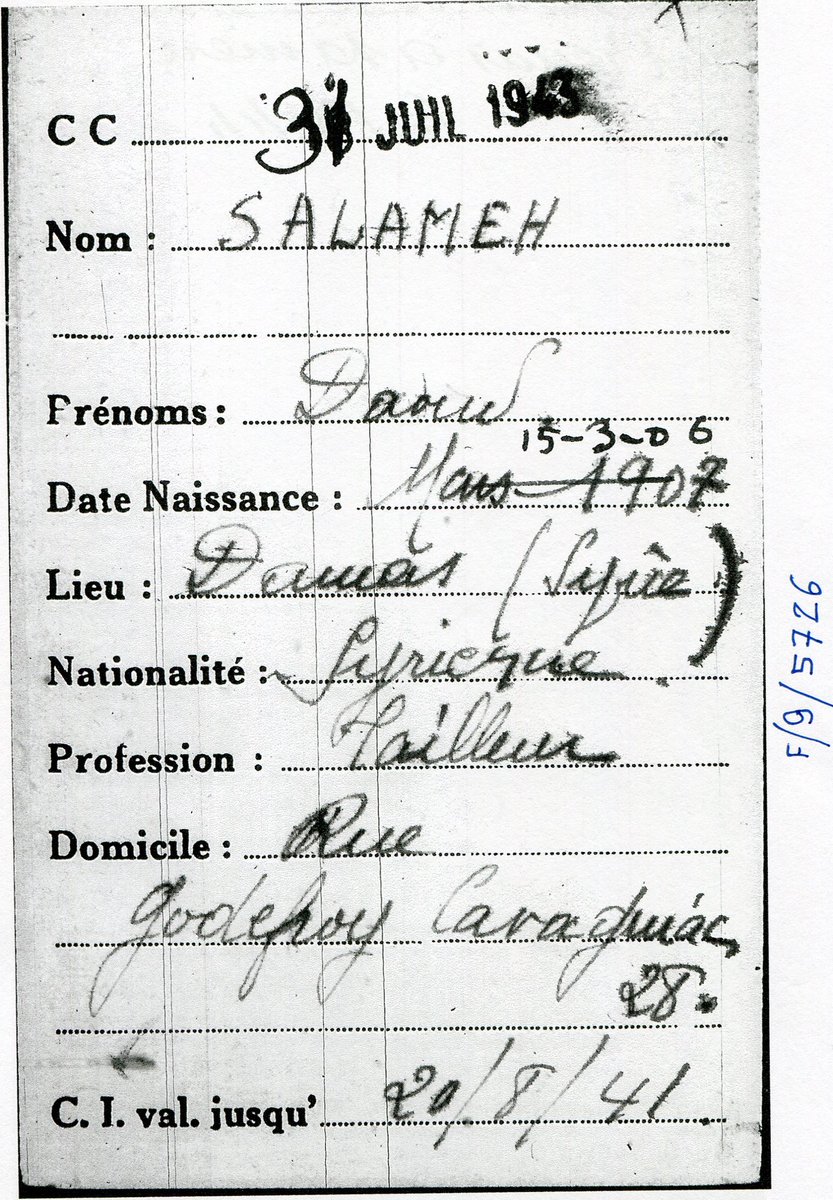 C C 31 JUIL 1943
Nom : SALAMEH
Prénoms : Daoud
15-3-06
Date Naissance : Mars 1907
Lieu : Damas (Syrie)
Nationalité : Syrienne
Profession : Tailleur
Domicile : Rue
Godefroy Cavagnac
28.
C. I. val. jusqu' 20/8/41.
F/9/5726